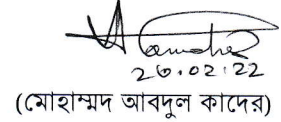 ২৩.০২.২২
(মোহাম্মদ আবদুল কাদের)